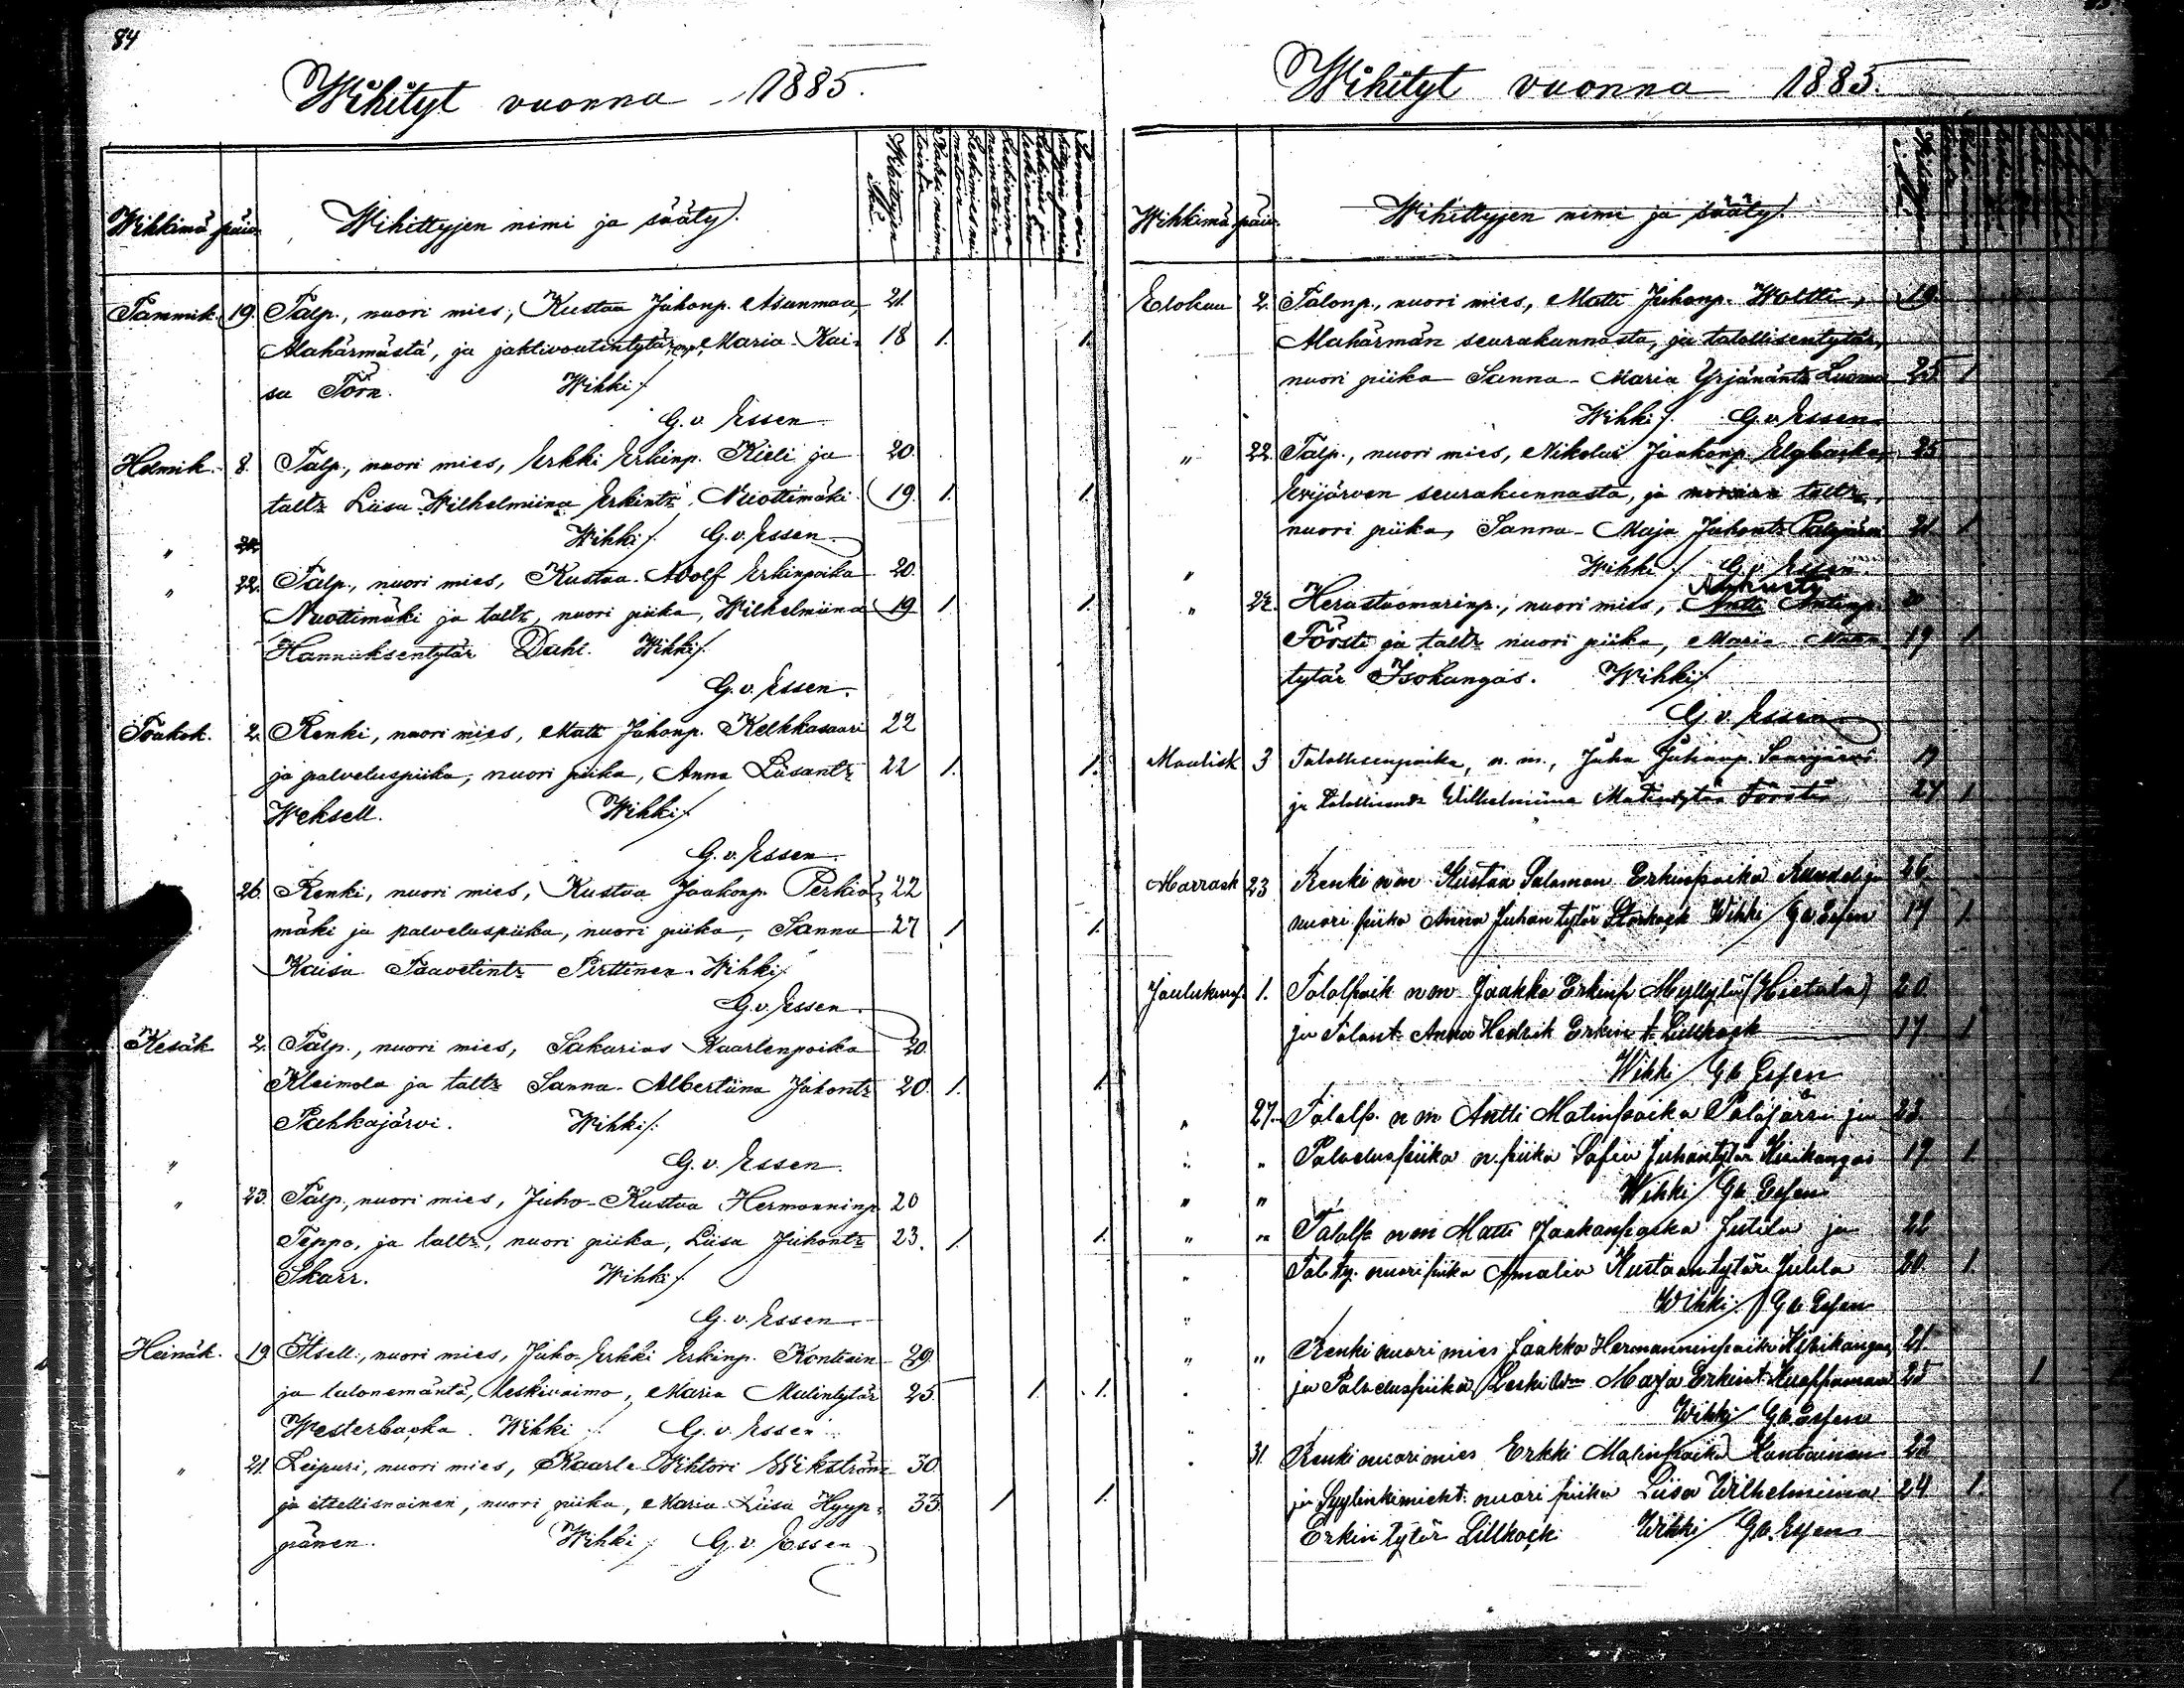 84
Wihityt vuonna 1885.
Wihkimä päiv.
Wihittyjen nimi ja sääty.
Wihittyjen Ikä.
Tammik. 19. Talp., nuori mies, Kustaa Juhonp. Asunmaa, 21.
Alahärmästä, ja jahtivoutintytär, Maria Kai- 18 1. 1.
sa Törn. Wihki/
G. v. Essen
Helmik. 8. Talp., nuori mies, Erkki Erkinp. Kieli ja 20.
taltr Liisa Wilhelmiina Erkintr Nuottimäki 19. 1. 1.
Wihki/. G. v. Essen.
" 22. Talp., nuori mies, Kustaa Adolf Erkinpoika 20.
Nuottimäki ja taltr, nuori piika, Wilhelmiina 19 1. 1.
Hannuksentytär Dahl. Wihki/.
G. v. Essen.
Toukok. 2. Renki, nuori mies, Matti Juhonp. Kelhkasaari 22
ja palveluspiika, nuori piika, Anna Liisantr 22 1. 1.
Weksell. Wihki/.
G. v. Essen.
26. Renki, nuori mies, Kustaa Jaakonp. Perkiö- 22
mäki ja palveluspiika, nuori piika, Sanna 27 1. 1.
Kaisa Taavetintr Pirttinen. Wihki/
G. v. Essen.
Kesäk. 2. Talp., nuori mies, Sakarias Kaarlenpoika 20.
Kleimola ja taltr Sanna Albertiina Juhontr 20. 1. 1.
Pahkajärvi. Wihki/.
G. v. Essen.
" 23. Talp., nuori mies, Juho-Kustaa Hermanninp 20
Teppo, ja taltr, nuori piika, Liisa Juhontr 23. 1. 1.
Skarr. Wihki/.
G. v. Essen
Heinäk. 19. Itsell., nuori mies, Juho-Erkki Erkinp. Kontiain 29.
ja talonemäntä, leskivaimo, Maria Matintytär 25. 1. 1.
Westerbacka. Wihki/. G. v. Essen
" 21. Leipuri, nuori mies, Kaarle Wihtori Wikström 30.
ja itsellisnainen, nuori piika, Maria Liisa Hyyp- 33. 1 1.
pänen. Wihki/. G. v. Essen
Wihityt vuonna 1885.
Wihkimä päiv.
Wihittyjen nimi ja sääty.
Elokuu 2. Talonp., nuori mies, Matti Juhonp. Woltti, 19.
Alahärmän seurakunnasta, ja talollisentytär,
nuori piika Sanna-Maria Yrjänäntr Luoma 25 1
Wihki/. G. v. Essen
" 22. Talp., nuori mies, Nikolai Jaakonp. 25
Evijärven seurakunnasta, ja taltr,
nuori piika, Sanna-Maja Juhontr 21. 1
Wihki/. G. v. Essen.
" 22. Herastuomarinp., nuori mies, Antinp. 20
Försti ja taltr nuori piika, Maria 19 1
tytär Isokangas. Wihki/.
G. v. Essen
Maalisk 3 Talollisenpoika, n. m., Juha Juhanp. Saarijärvi 19
ja Wilhelmiina Matintytär Försti 24 1
Marrask 23 Renki n m Kustaa Salomon Erkinpoika 26.
nuori piika Anna Juhan tytär Storkock Wihki/ G v Essen 17 1
Jouluk. 1. Talolpoik n m Jaakko Erkinp Myllylä (Hietala) 20
ja Talont. Anna Hedvik Erkin t. Lillkock 17 1
Wihki/ G v Essen
" 27. Talolp. n m Antti Matinpoika Palojärvi ja 23.
" " Palveluspiika n. piika Sofia Juhantytär Kivikangas 19 1
" " Wihki/ G v Essen
" " Talolp n m Matti Jaakonpoika Jutila ja 22
" Tal. ty. nuori piika Amalia Kustaan tytär Julla 20 1.
Wihki/ G v Essen
" " Renki nuori mies Jaakko Hermanninpoika Kivikangas 21.
ja Palveluspiika Leski Maja Erkint. 25 1
Wihki/ G v Essen
31. Renki nuori mies Erkki Matinpoika Kontiainen 23
ja nuori piika Liisa Wilhelmiina 24 1.
Erkin tytär Lillkock Wihki/ G v Essen